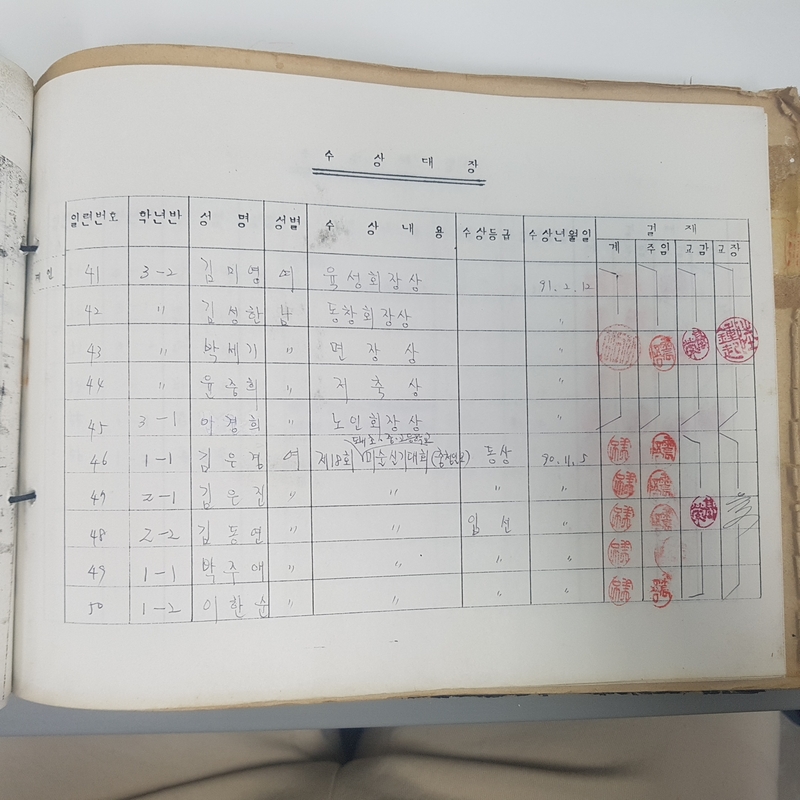 수 상 대 장
일련번호 학년반 성 명 성별 수 상 내 용 수상등급 수상년월일 결 재
계 주임 교감 교장
41 3-2 김미영 여 육성회장상 91. 2. 12
42 〃 김성한 남 동창회장상 〃
43 〃 박세기 〃 면 장 상 〃
44 〃 윤중희 〃 저 축 상 〃
45 3-1 이경희 〃 노인회장상 〃
도내 초·중·고등학교
46 1-1 김우경 여 제18회 미술실기대회 동상 90. 11. 5
47 2-1 김은진 〃 〃 〃 〃
48 2-2 김동연 〃 〃 입 선 〃
49 1-1 박주애 〃 〃 〃 〃
50 1-2 이한순 〃 〃 〃 〃